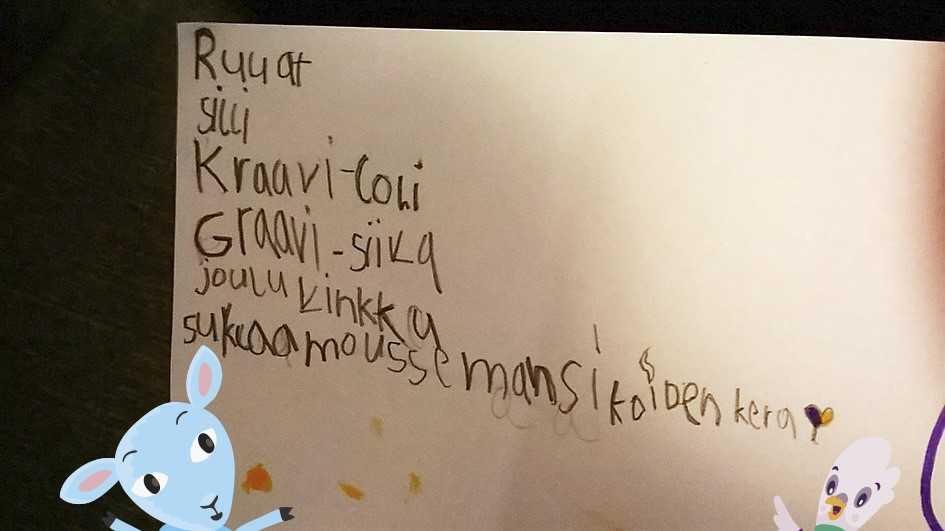 Ruuat
silli
Kraavi-Lohi
Graavi-siika
joulukinkku
suklaamousse mansikoiden kera